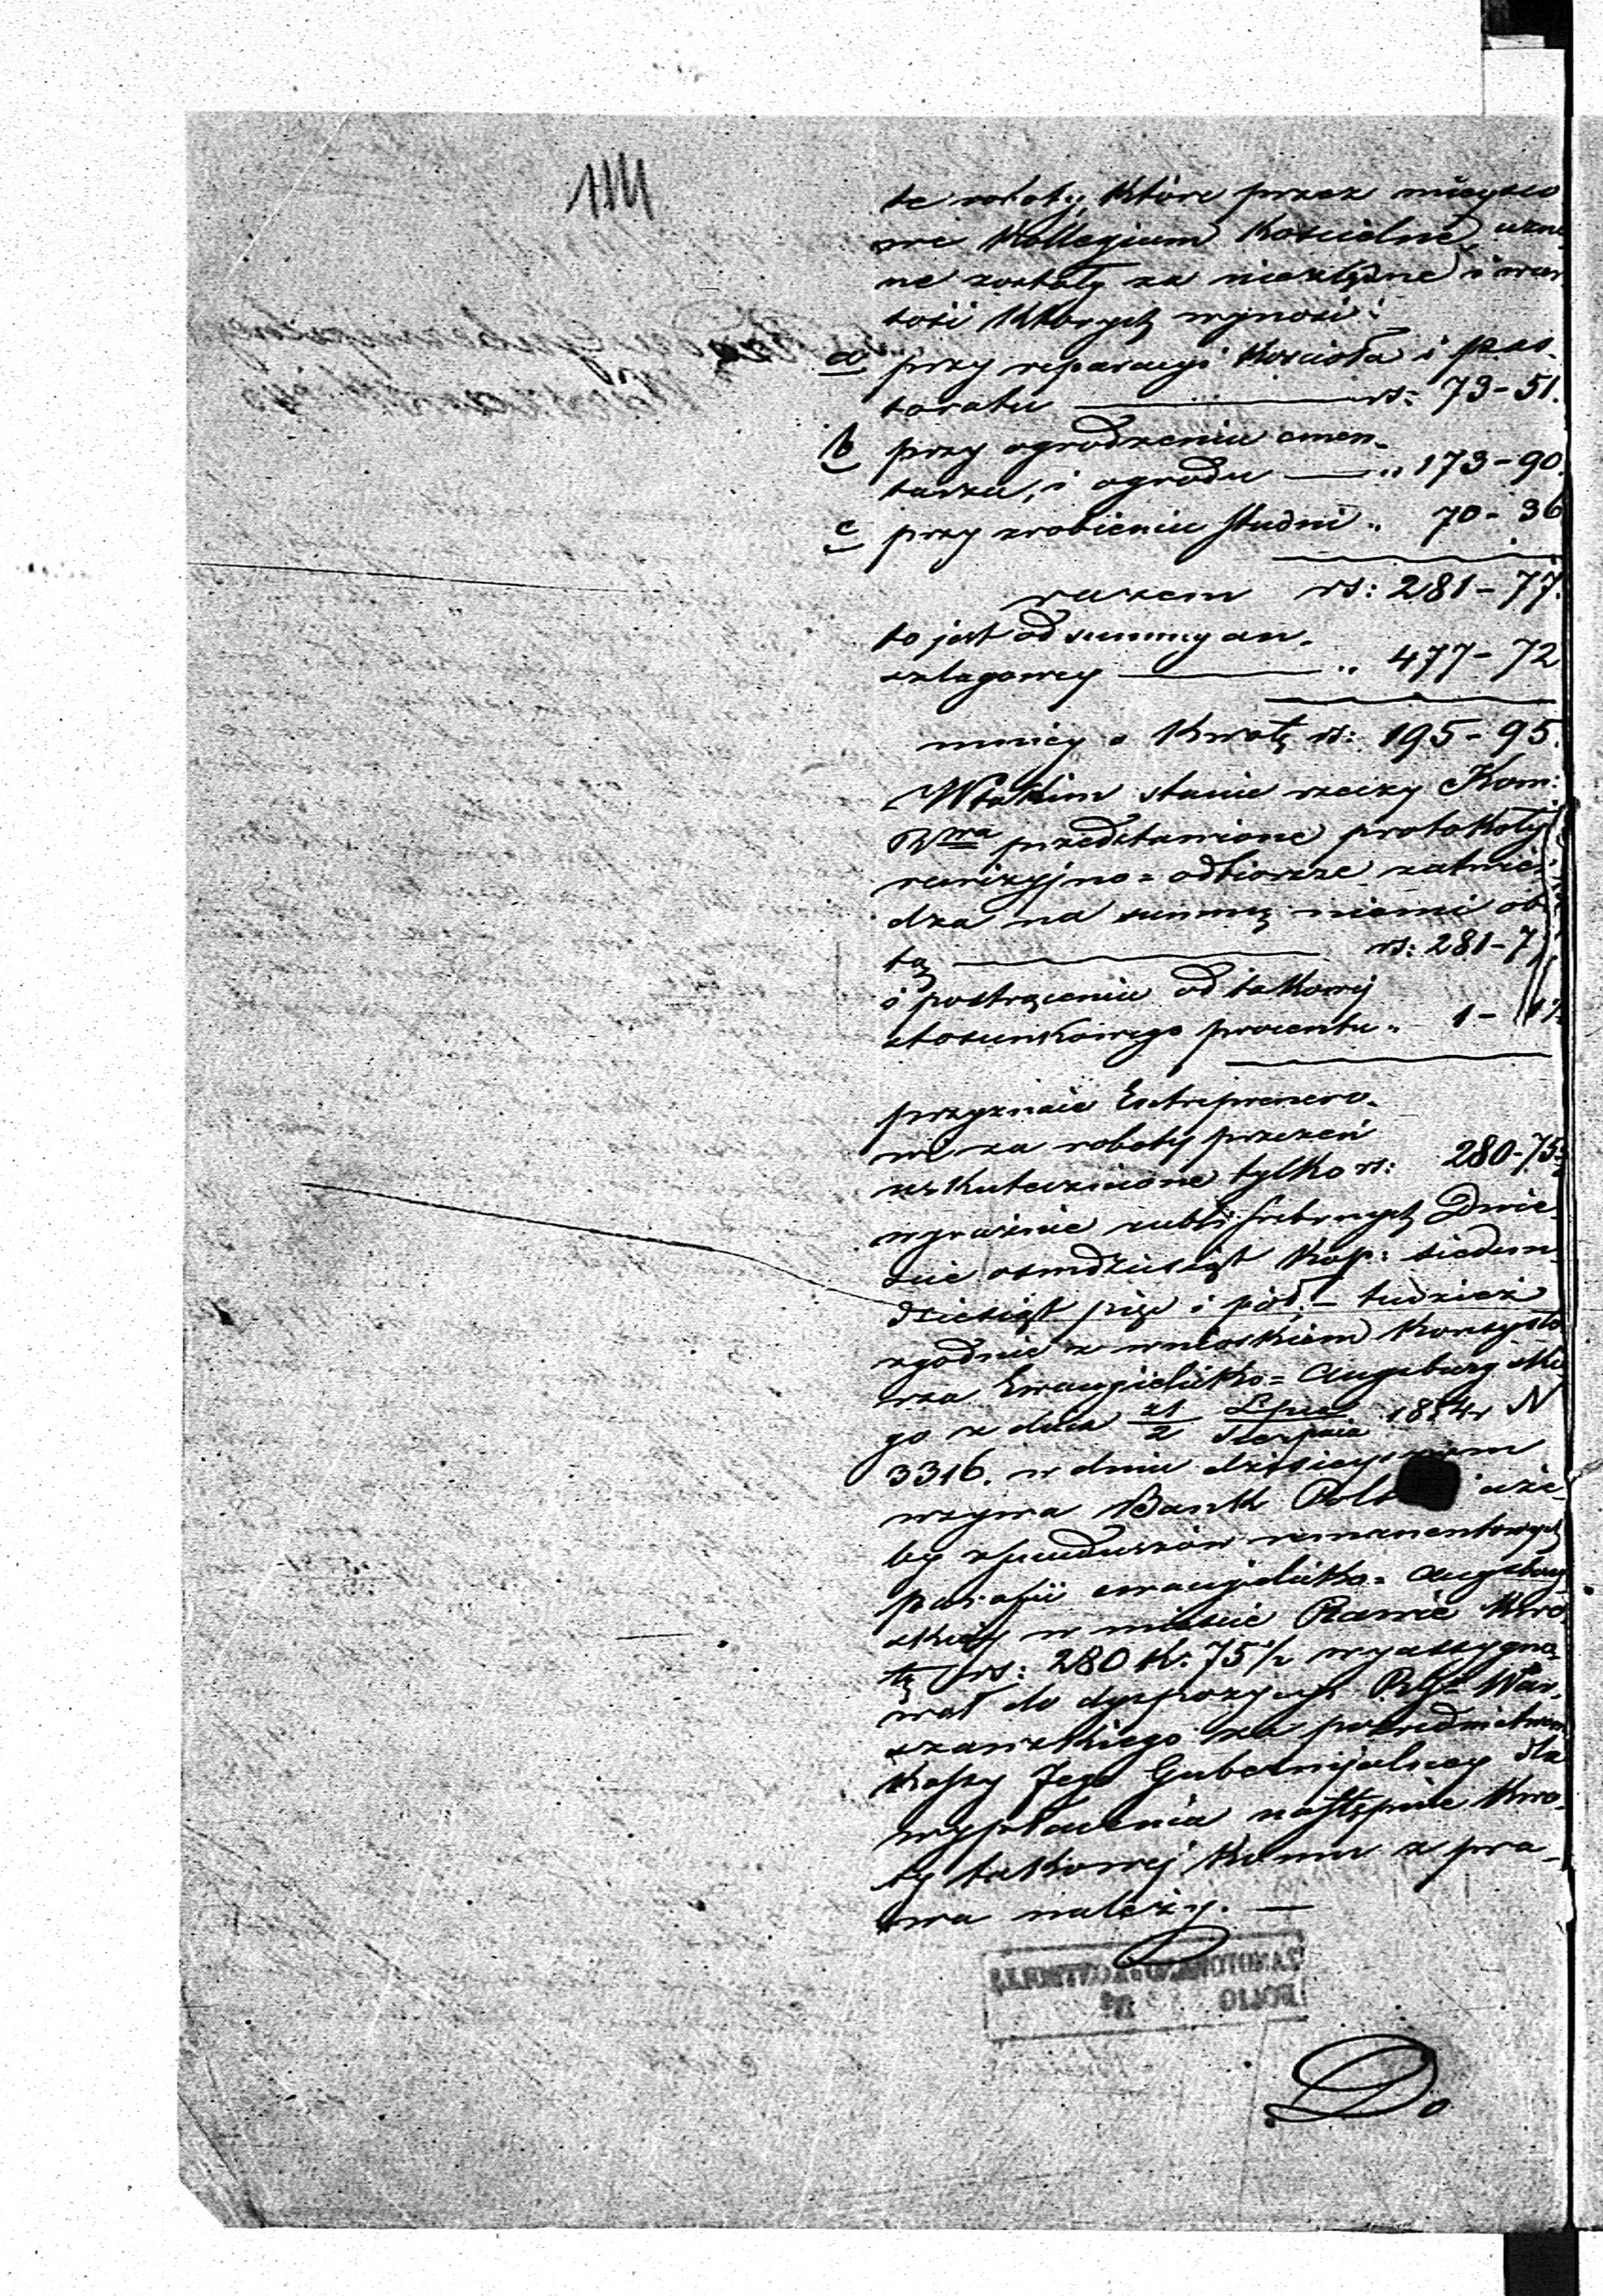 1111
te roboty, które przez mieysco
we Kollegium Kościelne uzna
ne zostały za niezbędne i war
tość których wynosi:
a przy reparacyi Kościoła i pas-
toratu rs: 73-51.
b przy ogrodzeniu cmen-
tarza, i ogrodu " 173-90.
c przy zrobieniu studni " 70-36
razem rs: 281-77.
to jest od summy an-
szlagowey " 477-72
mniey o Kwotę rs: 195-95.
W takim stanie rzeczy Kom:
Rwa przedstawione protokoły
rewizyjno=odbiorcze zatwier
dza na summę niemi obję
tą rs: 281-7
i postrąceniu od takowej
stosunkowego procentu " 1-
przyznaie Entreprenero-
wi za roboty przezeń
uskutecznione tylko rs: 280-75½
wyraźnie rubli srebrnych Dwie-
ście ośmdziesiąt Kop: siedem
dziesiąt pięć i pół. – tudzież
zgodnie z wnioskiem Konsysto
rza Ewangielicko=Augsburgskie
go z dnia 21/2 Lipca/Sierpnia 1854 r N
3316. w dniu dzisieyszym
wzywa Bank Pols aże-
by z funduszów remanentowych
parafii ewangielicko=Augsburg
skiey w mieście Rawie Kwo
tę rs: 280 K: 75½ wyassygno-
wał do dyspozycyi Rz. G. War-
szawskiego za pośrednictwem
Kassy Jego Gubernijalney dla
wypłacenia następnie Kwo-
ty takowej Komu z pra-
wa należy. —
FOLIO No
Do